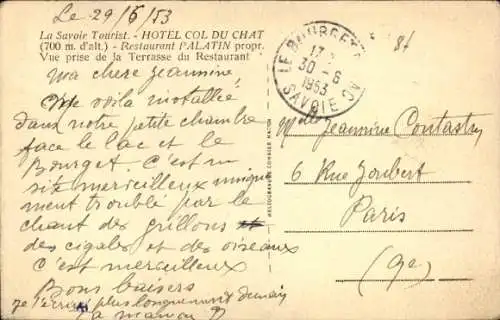 Le 29/6/53
La Savoie Tourist. - HOTEL COL DU CHAT
(700 m. d'alt.) - Restaurant PALATIN propr.
Vue prise de la Terrasse du Restaurant
Ma chère Jeannine,
Me voilà installée
dans notre petite chambre
face le lac et le
Bourget. C'est un
site merveilleux unique
ment troublé par le
chant des grillons
des cigales et des oiseaux
C'est merveilleux
Bons baisers
je t'écrai plus longuement demain
ta maman
HELIOGRAVURE COMBIER MACON
LE BOURGET
30-6
1953
SAVOIE
84
Mlle Jeannine Contastin
6 Rue Joubert
Paris
(9e)